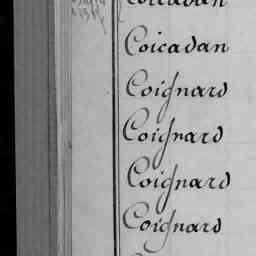 Coicadan
Coicadan
Coignard
Coignard
Coignard
Coignard